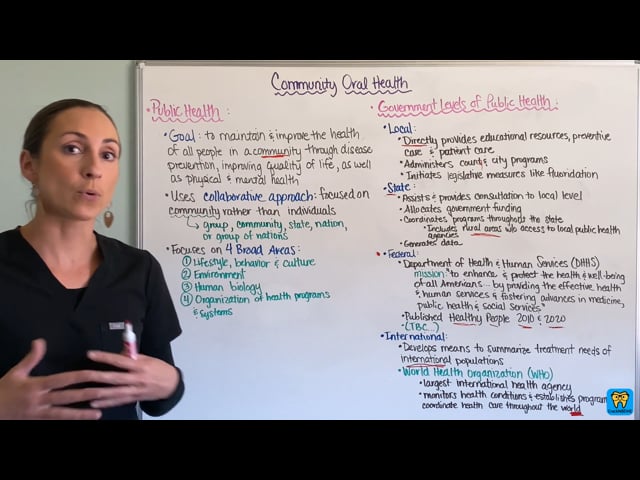 Community Oral Health
Public Health:
• Goal: to maintain & improve the health
of all people in a community through disease
prevention, improving quality of life, as well
as physical & mental health
• Uses collaborative approach: focused on
community rather than individuals
↳ group, community, state, nation,
or group of nations
• Focuses on 4 Broad Areas:
① Lifestyle, behavior & culture
② Environment
③ Human biology
④ Organization of health programs
& systems
Government Levels of Public Health:
• Local:
• Directly provides educational resources, preventive
care & patient care
• Administers county & city programs
• Initiates legislative measures like fluoridation
• State:
• Assists & provides consultation to local level
• Allocates government funding
• Coordinates programs throughout the state
• Includes rural areas w/o access to local public health
agencies
• Generates data
• Federal:
• Department of Health & Human Services (DHHS)
mission "to enhance & protect the health & well-being
of all Americans... by providing the effective health
& human services & fostering advances in medicine,
public health & social services"
• Published Healthy People 2010 & 2020
(TBC...)
• International:
• Develops means to summarize treatment needs of
international populations
• World Health Organization (WHO)
• largest international health agency
• monitors health conditions & establishes program
coordinate health care throughout the world